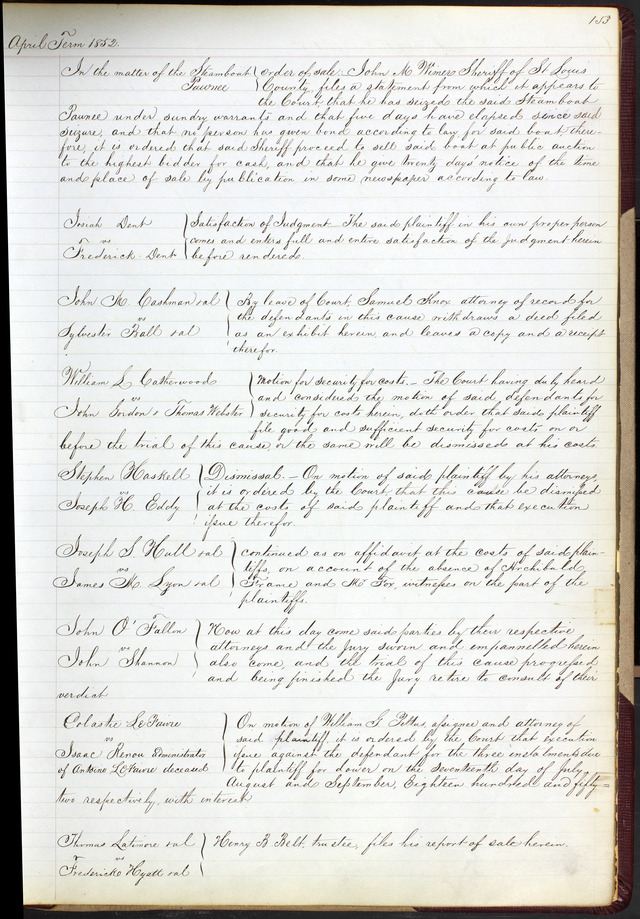 153
April Term 1852.
In the matter of the Steamboat } order of sale - John M Wimer Sheriff of St Louis
Pawnee } County, files a statement from which it appears to
the Court, that he has seized the said Steamboat
Pawnee under sundry warrants and that five days have elapsed since said
seizure, and that no person has given bond according to law for said boat there-
fore, it is ordered that said Sheriff proceed to sell said boat at public auction
to the highest bidder for cash, and that he give twenty days notice of the time
and place of sale by publication in some newspaper according to law.
Josiah Dent } Satisfaction of Judgment - The said plaintiff in his own proper person
vs } comes and enters full and entire satisfaction of the judgment herein
Frederick Dent } before rendered.
John M. Cashman et al } By leave of Court, Samuel Knox attorney of record for
vs } the defendants in this cause withdraws a deed filed
Sylvester Ball et al } as an exhibit herein, and leaves a copy and a receipt
therefor.
William L Catherwood } Motion for security for costs. - The Court having duly heard
vs } and considered the motion of said, defendants for
John Gordon & Thomas Webster } security for costs herein, doth order that said plaintiff
file good and sufficient security for costs on or
before the trial of this cause, or the same will be dismissed at his costs
Stephen Haskell } Dismissal. - On motion of said plaintiff by his attorneys,
vs } it is ordered by the Court, that this cause be dismissed
Joseph H. Eddy } at the costs, of said plaintiff and that execution
issue therefor.
Joseph S Hull et al } continued as on affidavit at the costs of said plain-
vs } tiffs, on account of the absence of Archibald
James M. Lyon et al } and Mr Fox, witnesses on the part of the
plaintiffs.
John O'Fallon } Now at this day come said parties by their respective
vs } attorneys and the Jury sworn and empannelled herein
John Shannon } also come, and the trial of this cause progressed
and being finished the Jury retire to consult of their
verdict
Colastie LeFaivre } On motion of William G. Pettus, assignee and attorney of
vs } said plaintiff it is ordered by the Court that execution
Isaac Renou Administrator } issue against the defendant for the three instalments due
of Antoine LeFaivre deceased } to plaintiff for dower on the seventeenth day of July,
August and September, Eighteen hundred and fifty=
two respectively, with interest
Thomas Latimore et al } Henry B Belt, trustee, files his report of sale herein.
vs
Frederick Hyatt et al }